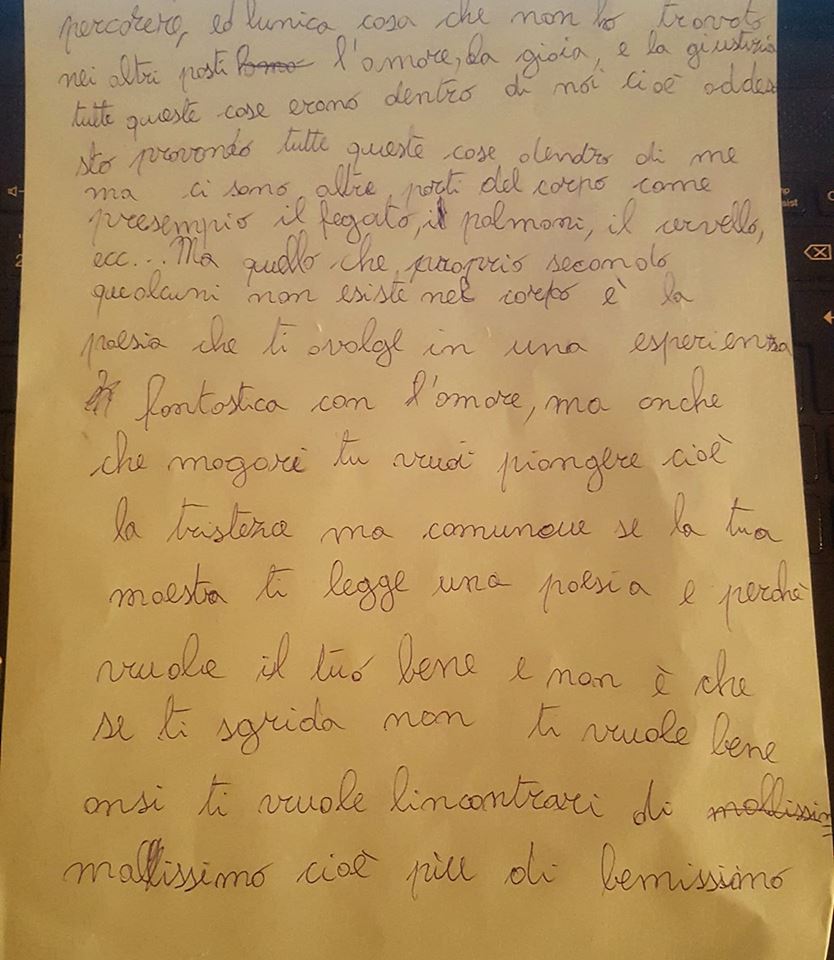 percorere, ed lunica cosa che non ho trovato
nei altri posti l'amore, la gioia, e la giustizia
tutte queste cose erano dentro di noi cioè addes
sto provando tutte queste cose dendro di me
ma ci sono altre parti del corpo come
presempio il fegato, i polmoni, il cervello,
ecc... Ma quello che proprio secondo
quealcuni non esiste nel corpo è la
poesia che ti avolge in una esperienza
fantastica con l'amore, ma anche
che magari tu vuoi piangere cioè
la tristeza ma comunque se la tua
maestra ti legge una poesia e perchè
vuole il tuo bene e non è che
se ti sgrida non ti vuole bene
ansi ti vuole lincontrari di mallissim
mallissimo cioè più di benissimo